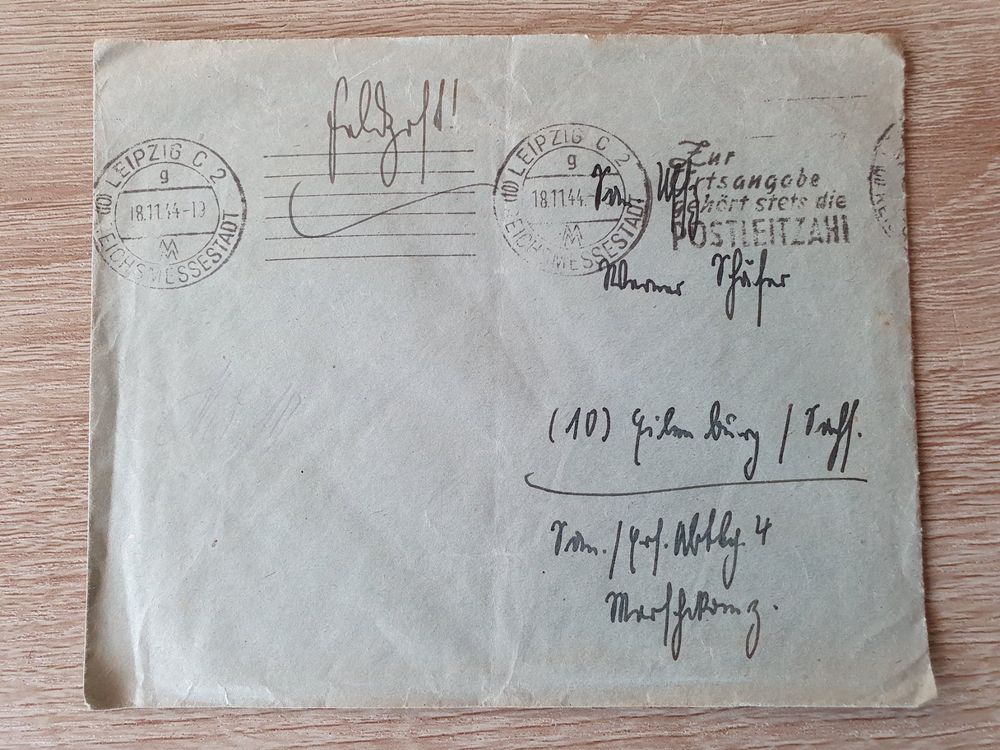 Feldpost!
(10) LEIPZIG C 2
g
18.11.44-19
MM
REICHSMESSESTADT
(10) LEIPZIG C 2
g
18.11.44-
MM
REICHSMESSESTADT
Zur
Ortsangabe
gehört stets die
POSTLEITZAHL
San.
Werner Schäfer
(10) Eilenburg / Sachs.
San./Ers. Abtlg. 4
Marschkomp.